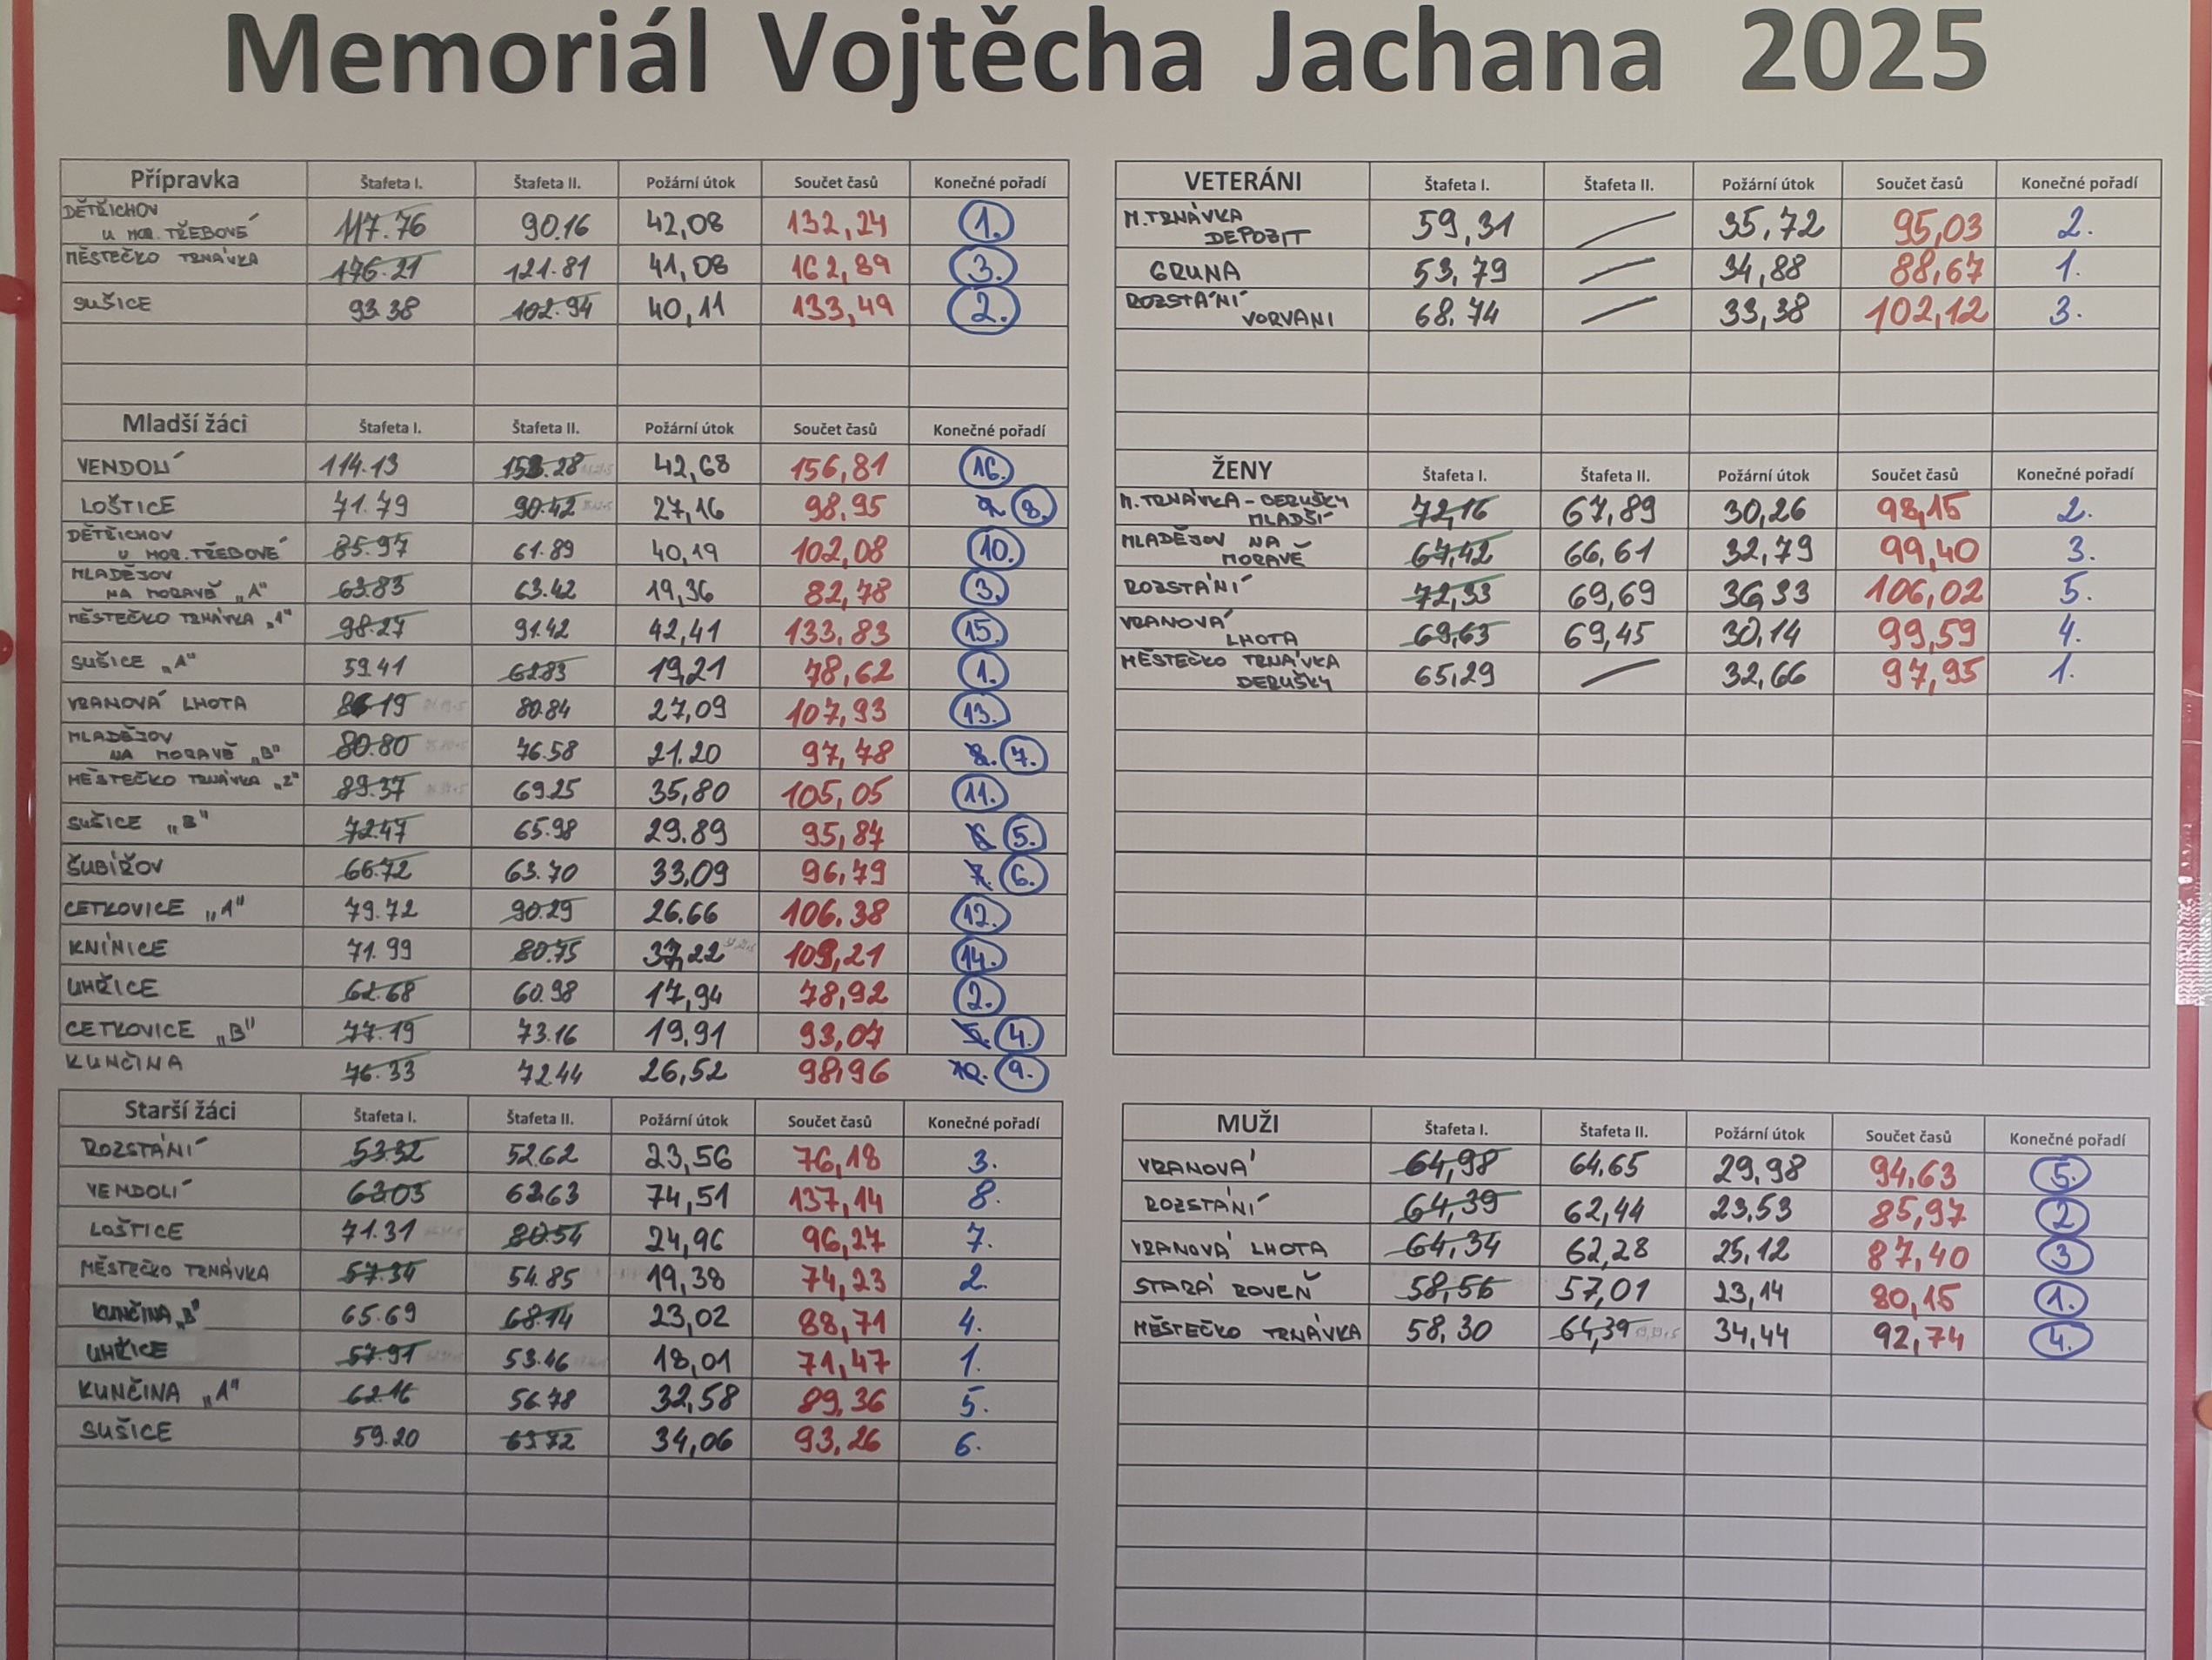 Memoriál Vojtěcha Jachana 2025
Přípravka Štafeta I. Štafeta II. Požární útok Součet časů Konečné pořadí
DĚTŘICHOV
U MOR. TŘEBOVÉ 117.76 90.16 42,08 132,24 1.
MĚSTEČKO TRNÁVKA 176.21 121.81 41,08 162,89 3.
SUŠICE 93.38 102.94 40,11 133,49 2.
Mladší žáci Štafeta I. Štafeta II. Požární útok Součet časů Konečné pořadí
VENDOLÍ 114.13 153.28 42,68 156,81 16.
LOŠTICE 71.79 90.42 27,16 98,95 8.
DĚTŘICHOV
U MOR. TŘEBOVÉ 85.97 61.89 40,19 102,08 10.
MLADĚJOV
NA MORAVĚ „A" 63.83 63.42 19,36 82,78 3.
MĚSTEČKO TRNÁVKA „1" 98.27 91.42 42,41 133,83 15.
SUŠICE „A" 59.41 62.83 19,21 78,62 1.
VRANOVÁ LHOTA 86.19 80.84 27,09 107,93 13.
MLADĚJOV
NA MORAVĚ „B" 80.80 76.58 21.20 97,78 8. 7.
MĚSTEČKO TRNÁVKA „2" 89.37 69.25 35,80 105,05 11.
SUŠICE „B" 72.47 65.98 29.89 95,87 6. 5.
ŠUBÍŘOV 66.72 63.70 33,09 96,79 7. 6.
CETKOVICE „A" 79.72 90.29 26.66 106.38 12.
KNÍNICE 71.99 80.75 37,22 109,21 14.
UHŘICE 62.68 60.98 17,94 78,92 2.
CETKOVICE „B" 77.19 73.16 19,91 93,07 5. 4.
KUNČINA 76.33 72.44 26,52 98,96 10. 9.
Starší žáci Štafeta I. Štafeta II. Požární útok Součet časů Konečné pořadí
ROZSTÁNÍ 53.32 52.62 23,56 76,18 3.
VENDOLÍ 63.03 62.63 74,51 137,14 8.
LOŠTICE 71.31 80.54 24,96 96,27 7.
MĚSTEČKO TRNÁVKA 57.34 54.85 19,38 74,23 2.
KUNČINA „B" 65.69 68.14 23,02 88,71 4.
UHŘICE 57.91 53.46 18,01 71,47 1.
KUNČINA „A" 62.16 56.78 32,58 89,36 5.
SUŠICE 59.20 63.72 34,06 93,26 6.
VETERÁNI Štafeta I. Štafeta II. Požární útok Součet časů Konečné pořadí
M. TRNÁVKA
DEPOZIT 59,31 35,72 95,03 2.
GRUNA 53,79 34,88 88,67 1.
ROZSTÁNÍ
VORVANI 68,74 33,38 102,12 3.
ŽENY Štafeta I. Štafeta II. Požární útok Součet časů Konečné pořadí
M. TRNÁVKA - BERUŠKY
MLADŠÍ 72,16 67,89 30,26 98,15 2.
MLADĚJOV NA
MORAVĚ 67,42 66,61 32,79 99,40 3.
ROZSTÁNÍ 72,33 69,69 36,33 106,02 5.
VRANOVÁ
LHOTA 69,63 69,45 30,14 99,59 4.
MĚSTEČKO TRNÁVKA
BERUŠKY 65,29 32,66 97,95 1.
MUŽI Štafeta I. Štafeta II. Požární útok Součet časů Konečné pořadí
VRANOVÁ 64,98 64,65 29,98 94,63 5.
ROZSTÁNÍ 64,39 62,44 23,53 85,97 2
VRANOVÁ LHOTA 64,34 62,28 25,12 87,40 3
STARÁ ROVEŇ 58,56 57,01 23,14 80,15 1.
MĚSTEČKO TRNÁVKA 58,30 64,39 34,44 92,74 4.